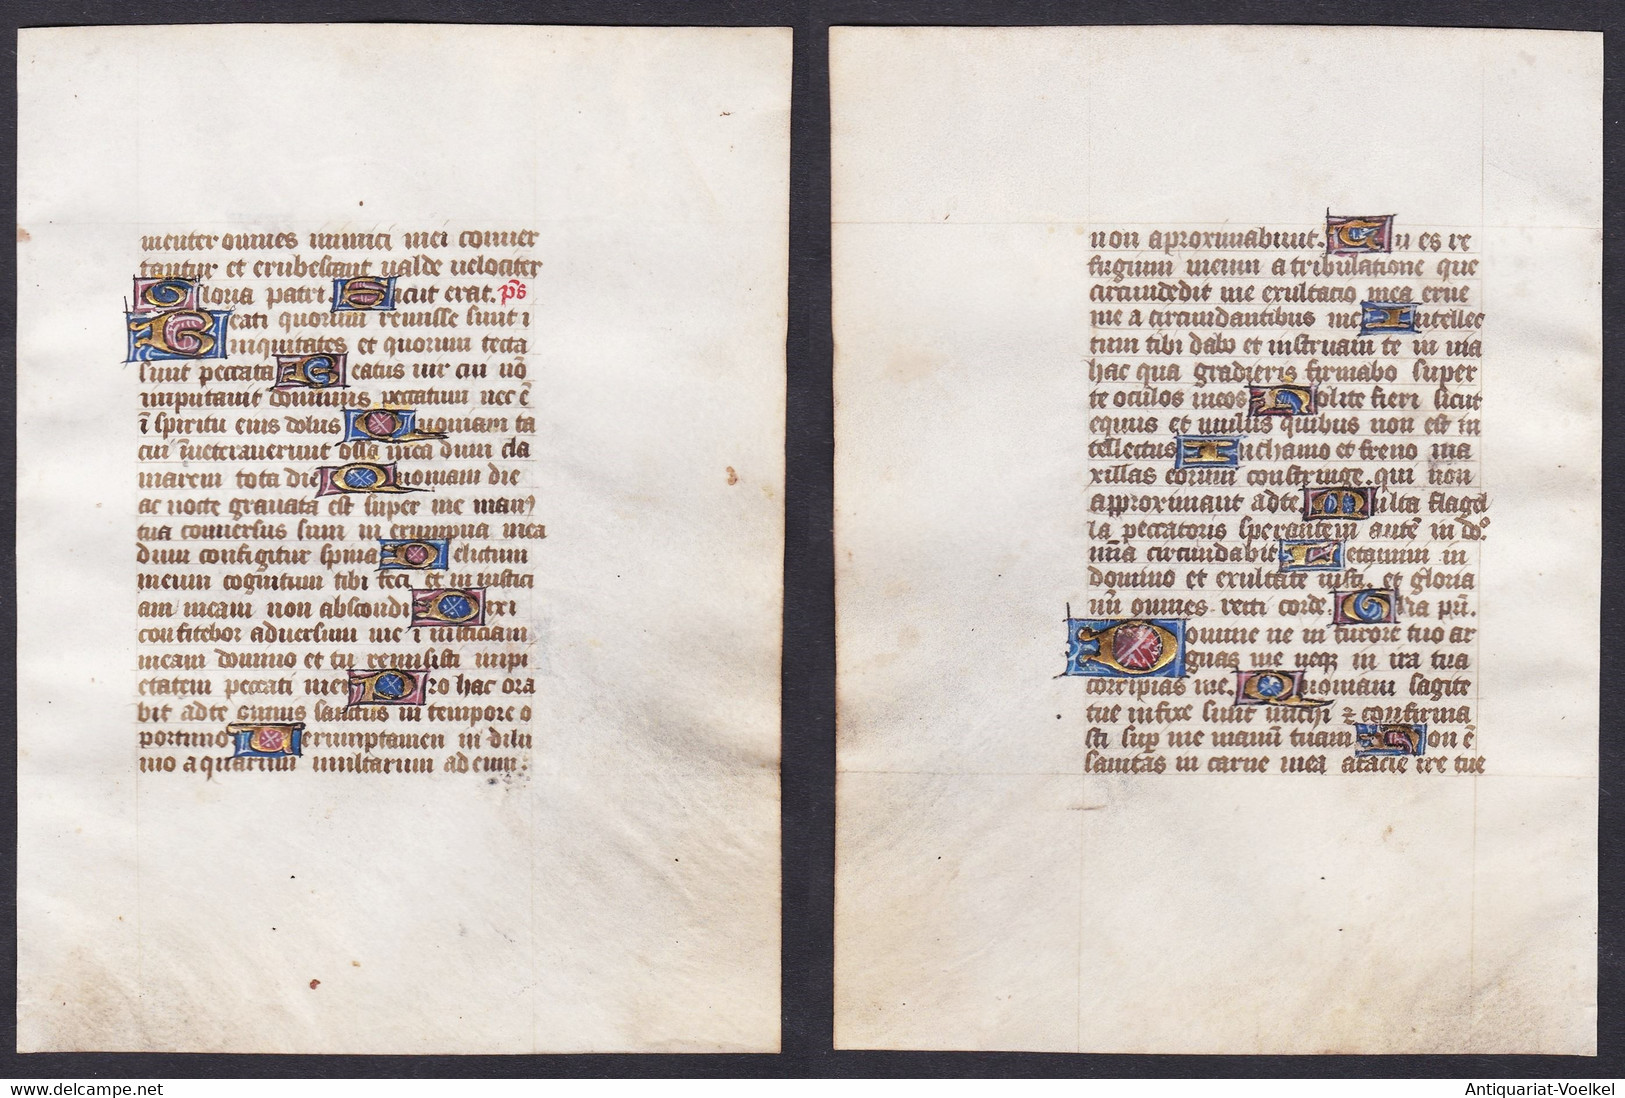 menter omnes inimici mei conuer
tantur et erubescant ualde uelociter
Gloria patri. Sicut erat. ps
Beati quorum remisse sunt i
niquitates et quorum tecta
sunt peccata Beatus uir cui nō
imputauit dominus peccatum nec ē
ī spiritu eius dolus Quoniam ta
cui īueterauerunt ossa mea dum cla
marem tota die Quoniam die
ac nocte grauata est super me man9
tua conuersus sum in erumpna mea
dum configitur spina Delictum
meum cognitum tibi feci et in iustici
am meam non abscondi Dixi
confitebor aduersum me ī iusticiam
meam domino et tu remisisti impi
etatem peccati mei Pro hac ora
bit ad te omnis sanctus in tempore o
portuno Uerumptamen in dilu
uio aquarum multarum ad eum
non aproximabunt. Tu es re
fugium meum a tribulatione que
circumdedit me exultacio mea erue
me a circumdantibus me Intellec
tum tibi dabo et instruam te in uia
hac qua gradieris firmabo super
te oculos meos Nolite fieri sicut
equus et mulus quibus non est in
tellectus In chamo et freno ma
xillas eorum constringe. qui non
approximant ad te. Multa flagel
la peccatoris sperantem autē in do
mīa circumdabit Letamini in
domino et exultate iusti et gloria
mī omnes recti corde. Glīa prī.
Domine ne in furore tuo ar
guas me neqȝ in ira tua
corripias me. Quoniam sagite
tue infixe sunt michi ⁊ confirma
sti suꝑ me manū tuam Non ē
sanitas in carne mea a facie ire tue
Antiquariat-Voelkel
delcampe.net
Antiquariat-Voelkel